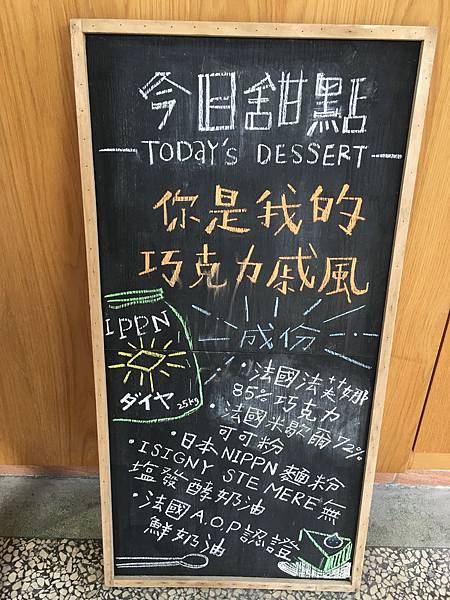 今日甜點
TODAY'S DESSERT
你是我的
巧克力戚風
IPPN
ダイヤ
25kg
成份
・法國法芙娜
85%巧克力
・法國米歇爾72%
可可粉
・日本NIPPN麵粉
・ISIGNY STE MERE無
鹽發酵奶油
・法國A.O.P認證
鮮奶油